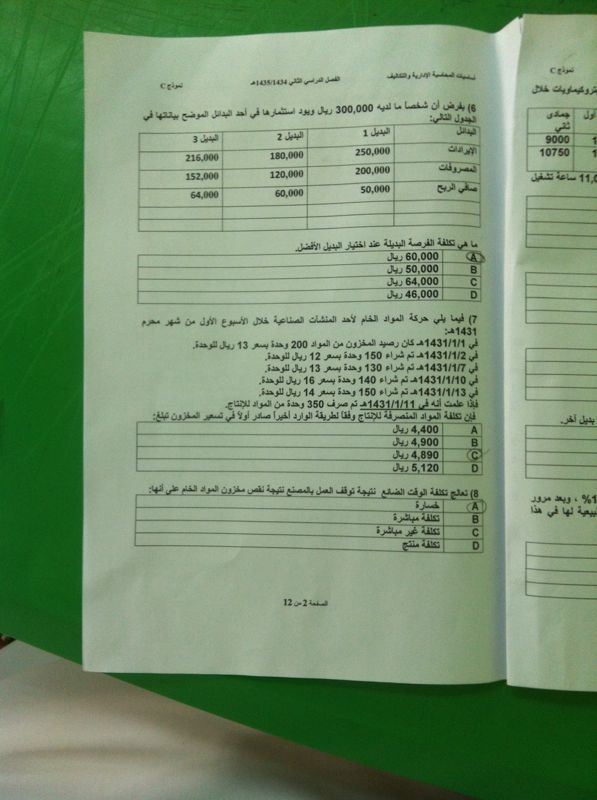 اساسيات المحاسبة الإدارية والتكاليف الفصل الدراسي الثاني 1435/1434هـ نموذج C
6) بفرض أن شخصاً ما لديه 300,000 ريال ويود استثمارها في أحد البدائل الموضح بياناتها في
الجدول التالي:
البدائل البديل 1 البديل 2 البديل 3
الإيرادات 250,000 180,000 216,000
المصروفات 200,000 120,000 152,000
صافي الربح 50,000 60,000 64,000
ما هي تكلفة الفرصة البديلة عند اختيار البديل الأفضل.
A 60,000 ريال
B 50,000 ريال
C 64,000 ريال
D 46,000 ريال
7) فيما يلي حركة المواد الخام لأحد المنشآت الصناعية خلال الأسبوع الأول من شهر محرم
1431هـ:
في 1431/1/1هـ كان رصيد المخزون من المواد 200 وحدة بسعر 13 ريال للوحدة.
في 1431/1/2هـ تم شراء 150 وحدة بسعر 12 ريال للوحدة.
في 1431/1/7هـ تم شراء 130 وحدة بسعر 13 ريال للوحدة.
في 1431/1/10هـ تم شراء 140 وحدة بسعر 16 ريال للوحدة.
في 1431/1/13هـ تم شراء 150 وحدة بسعر 14 ريال للوحدة.
فإذا علمت أنه في 1431/1/11هـ تم صرف 350 وحدة من المواد للإنتاج.
فإن تكلفة المواد المنصرفة للإنتاج وفقاً لطريقة الوارد أخيراً صادر أولاً في تسعير المخزون تبلغ:
A 4,400 ريال
B 4,900 ريال
C 4,890 ريال
D 5,120 ريال
8) تعالج تكلفة الوقت الضائع نتيجة توقف العمل بالمصنع نتيجة نقص مخزون المواد الخام على أنها:
A خسارة
B تكلفة مباشرة
C تكلفة غير مباشرة
D تكلفة منتج
الصفحة 2 من 12
نموذج C
تروكيماويات خلال
أول جمادى
ثاني
9000
10750
11,0 ساعة تشغيل
بديل آخر.
1% ، وبعد مرور
بيعية لها في هذا